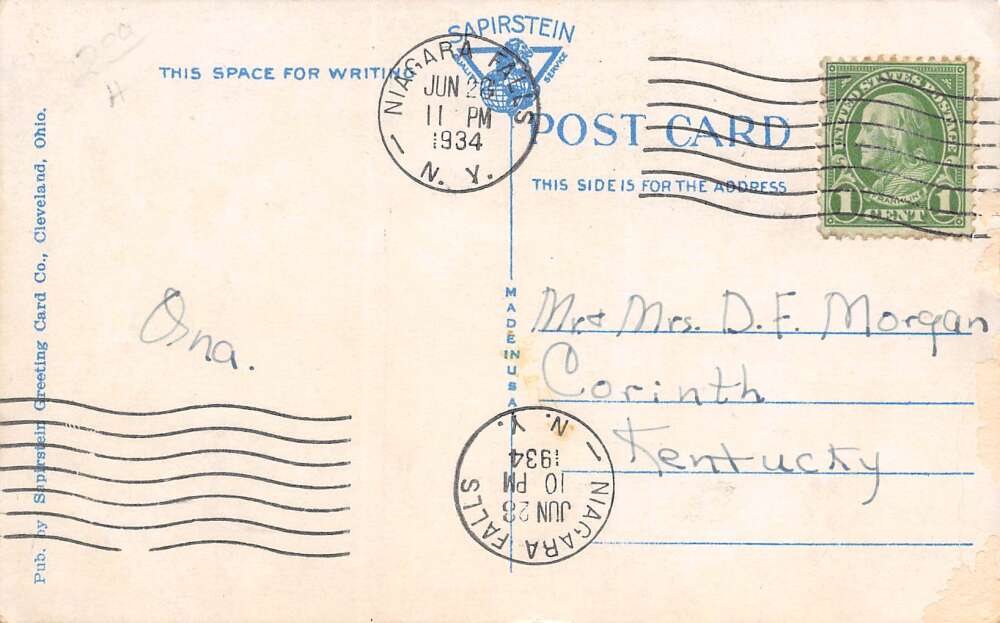 SAPIRSTEIN
QUALITY SERVICE
THIS SPACE FOR WRITING
NIAGARA FALLS
JUN 28
11 PM
1934
N. Y.
POST CARD
THIS SIDE IS FOR THE ADDRESS
UNITED STATES POSTAGE
FRANKLIN
1 CENT 1
Pub. by Sapirstein Greeting Card Co., Cleveland, Ohio.
MADE IN USA
Ona.
Mr & Mrs. D. F. Morgan
Corinth
Kentucky
NIAGARA FALLS
JUN 28
10 PM
1934
N. Y.